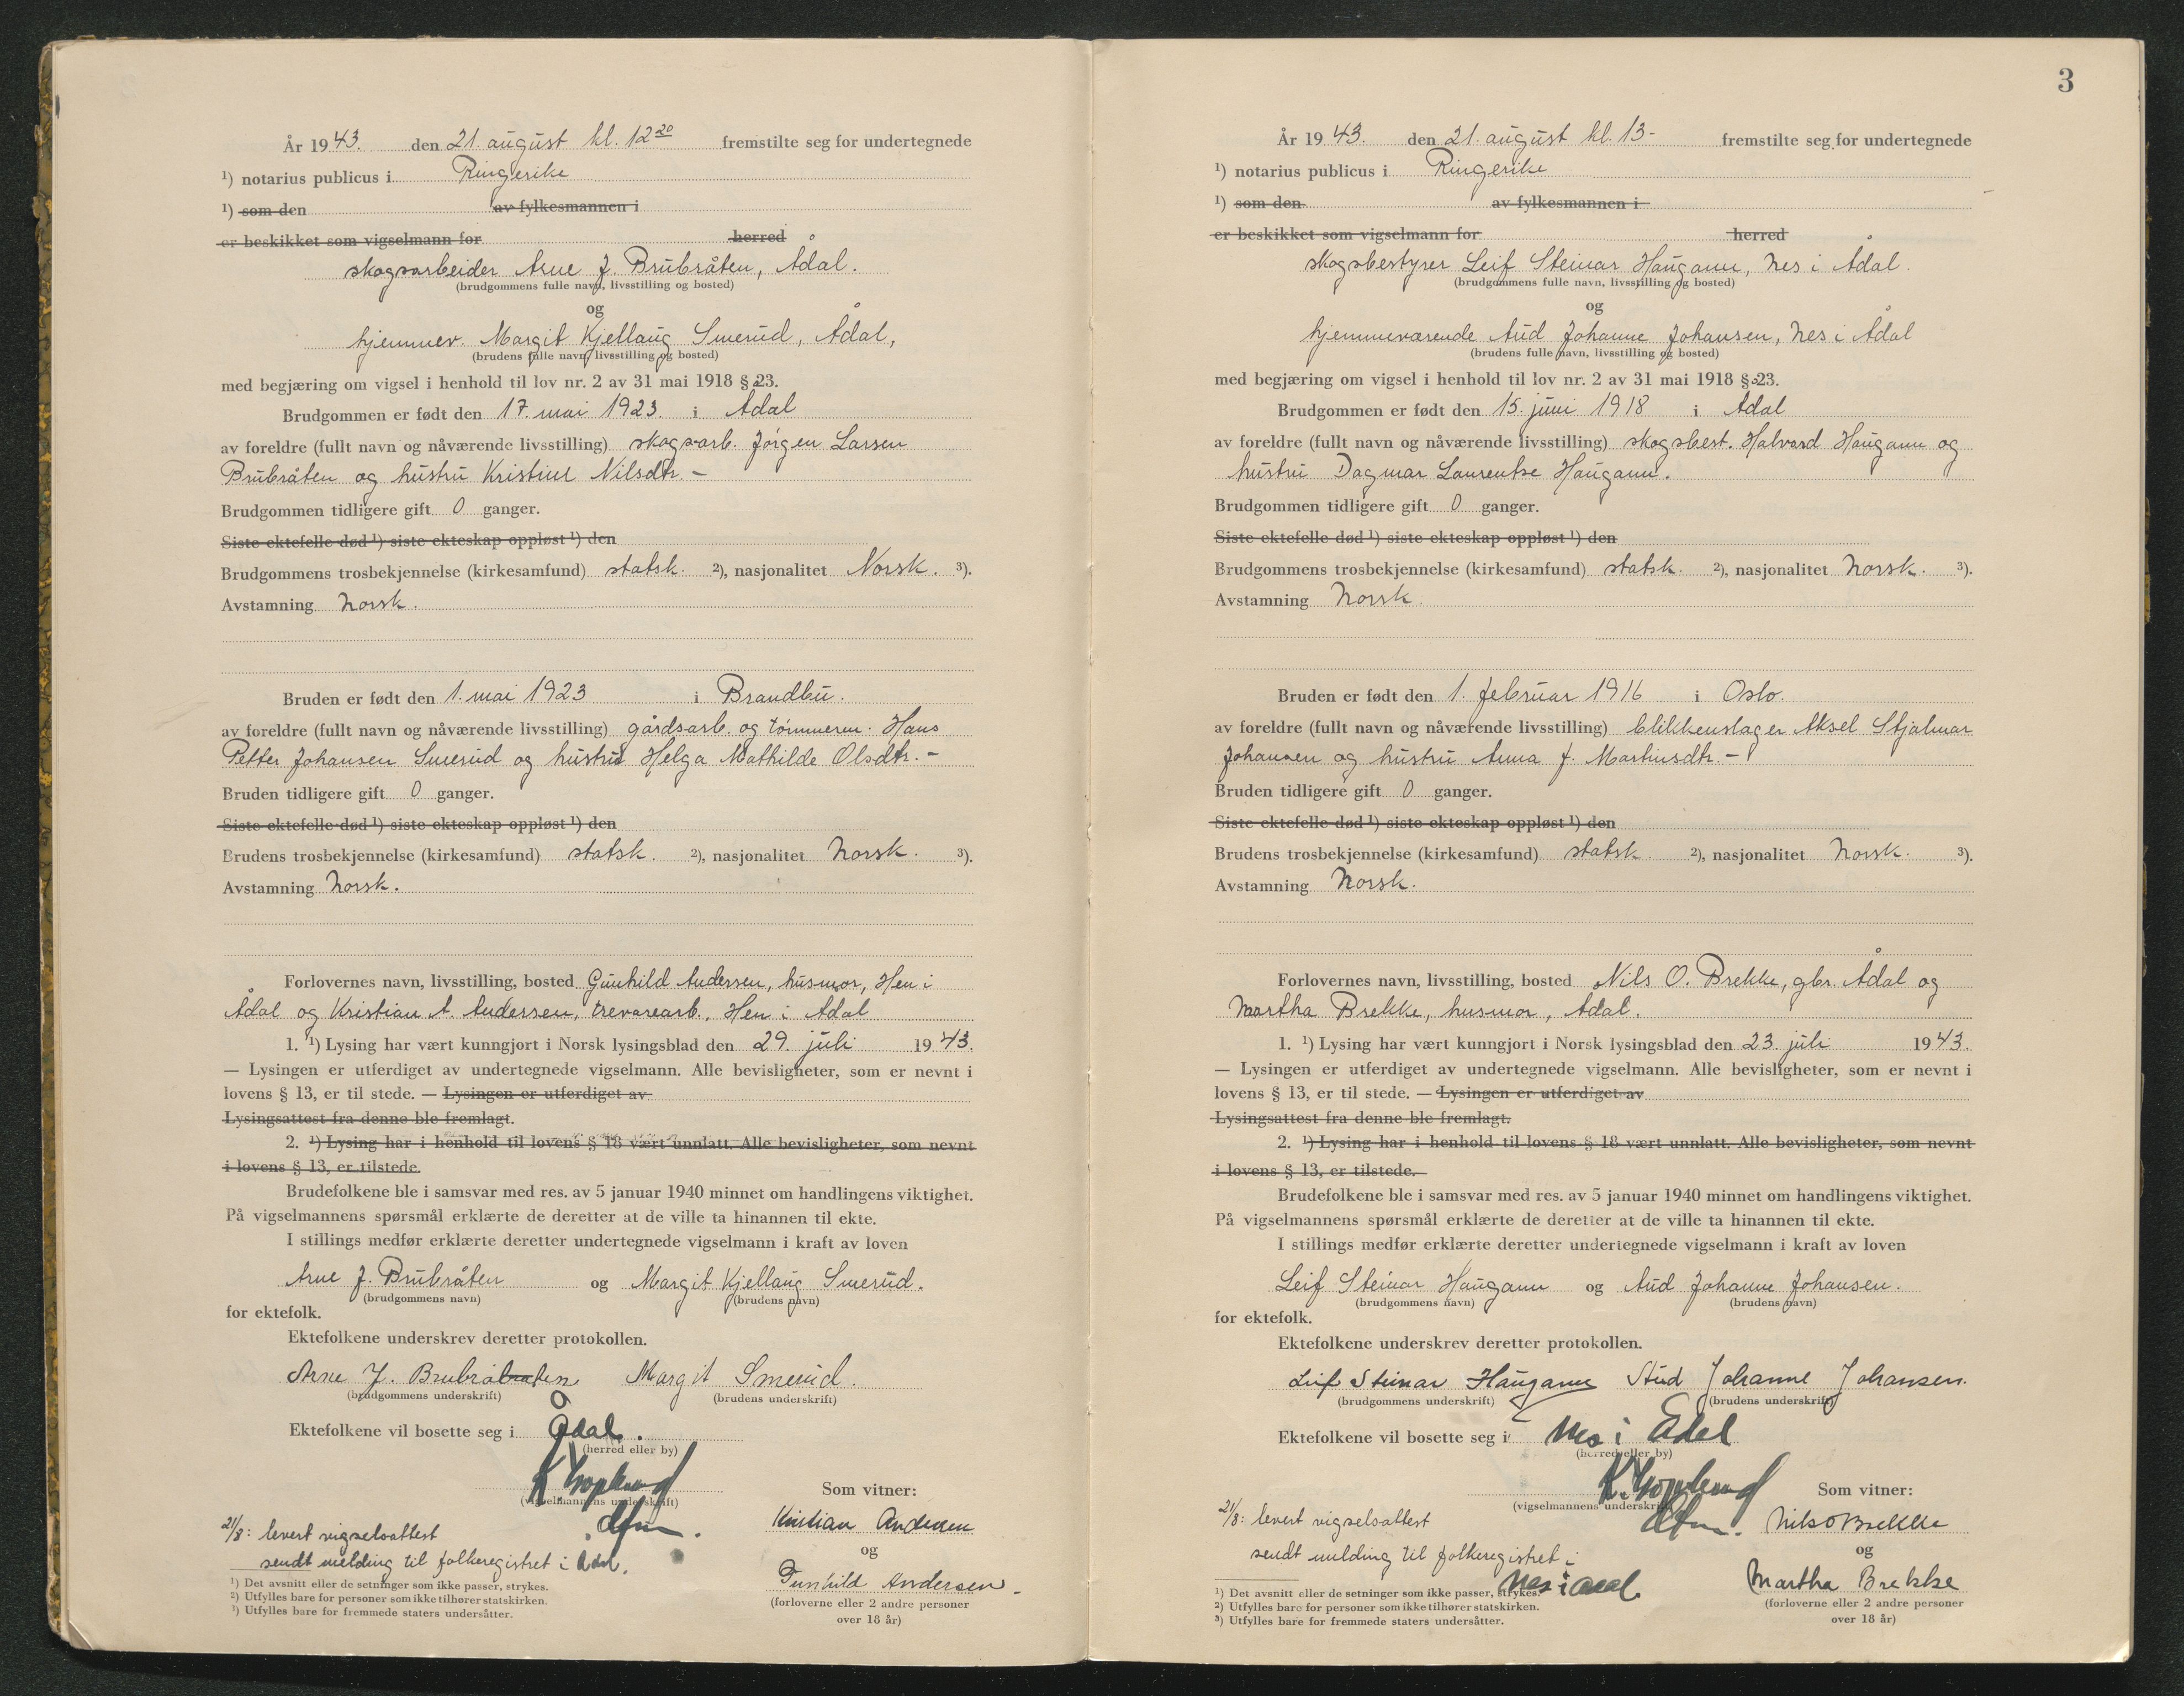 År 1943. den 21. august kl. 12 20 fremstilte seg for undertegnede
1) notarius publicus i Ringerike
1) som den av fylkesmannen i
er beskikket som vigselmann for herred
skogsarbeider Arne J. Brubråten, Ådal.
(brudgommens fulle navn, livsstilling og bosted)
og
hjemmev. Margit Kjellaug Smerud, Ådal,
(brudens fulle navn, livsstilling og bosted)
med begjæring om vigsel i henhold til lov nr. 2 av 31 mai 1918 § 23.
Brudgommen er født den 17. mai 1923. i Ådal
av foreldre (fullt navn og nåværende livsstilling) skogsarb. Jörgen Larsen
Brubråten og hustru Kristine Nilsdtr. -
Brudgommen tidligere gift 0 ganger.
Siste ektefelle død 1) siste ekteskap oppløst 1) den
Brudgommens trosbekjennelse (kirkesamfund) statsk. 2), nasjonalitet Norsk. 3).
Avstamning Norsk.
Bruden er født den 1. mai 1923 i Brandbu.
av foreldre (fullt navn og nåværende livsstilling) gårdsarb. og tömmerm. Hans
Petter Johansen Smerud og hustru Helga Mathilde Olsdtr. -
Bruden tidligere gift 0 ganger.
Siste ektefelle død 1) siste ekteskap oppløst 1) den
Brudens trosbekjennelse (kirkesamfund) statsk. 2), nasjonalitet Norsk. 3).
Avstamning Norsk.
Forlovernes navn, livsstilling, bosted Gunhild Andersen, husmor, Hen i
Ådal og Kristian A. Andersen, trevarearb., Hen i Ådal
1. 1) Lysing har vært kunngjort i Norsk lysingsblad den 29. juli 1943.
— Lysingen er utferdiget av undertegnede vigselmann. Alle bevisligheter, som er nevnt i
lovens § 13, er til stede. — Lysingen er utferdiget av
Lysingsattest fra denne ble fremlagt.
2. 1) Lysing har i henhold til lovens § 18 vært unnlatt. Alle bevisligheter, som nevnt
i lovens § 13, er tilstede.
Brudefolkene ble i samsvar med res. av 5 januar 1940 minnet om handlingens viktighet.
På vigselmannens spørsmål erklærte de deretter at de ville ta hinannen til ekte.
I stillings medfør erklærte deretter undertegnede vigselmann i kraft av loven
Arne J. Brubråten og Margit Kjellaug Smerud.
(brudgommens navn) (brudens navn)
for ektefolk.
Ektefolkene underskrev deretter protokollen.
Arne J. Brubråten Margit Smerud.
(brudgommens underskrift) (brudens underskrift)
Ektefolkene vil bosette seg i Ådal.
(herred eller by)
(vigselmannens underskrift) Som vitner:
21/8: levert vigselsattest Kristian Andersen
sendt melding til folkeregistret i Ådal. og
1) Det avsnitt eller de setninger som ikke passer, strykes. Gunhild Andersen
2) Utfylles bare for personer som ikke tilhører statskirken. (forloverne eller 2 andre personer
3) Utfylles bare for fremmede staters undersåtter. over 18 år)
3
År 1943. den 21. august kl. 13- fremstilte seg for undertegnede
1) notarius publicus i Ringerike
1) som den av fylkesmannen i
er beskikket som vigselmann for herred
skogsbestyrer Leif Steinar Haugann, Nes i Ådal.
(brudgommens fulle navn, livsstilling og bosted)
og
hjemmeværende Aud Johanne Johansen, Nes i Ådal
(brudens fulle navn, livsstilling og bosted)
med begjæring om vigsel i henhold til lov nr. 2 av 31 mai 1918 § 23.
Brudgommen er født den 15. juni 1918 i Ådal
av foreldre (fullt navn og nåværende livsstilling) skogsbest. Halvard Haugann og
hustru Dagmar Laurentse Haugann.
Brudgommen tidligere gift 0 ganger.
Siste ektefelle død 1) siste ekteskap oppløst 1) den
Brudgommens trosbekjennelse (kirkesamfund) statsk. 2), nasjonalitet Norsk. 3).
Avstamning Norsk.
Bruden er født den 1. februar 1916 i Oslo.
av foreldre (fullt navn og nåværende livsstilling) blikkenslager Aksel Hjalmar
Johansen og hustru Anna J. Martinsdtr. -
Bruden tidligere gift 0 ganger.
Siste ektefelle død 1) siste ekteskap oppløst 1) den
Brudens trosbekjennelse (kirkesamfund) statsk. 2), nasjonalitet Norsk. 3).
Avstamning Norsk.
Forlovernes navn, livsstilling, bosted Nils O. Brekke, gbr. Ådal og
Martha Brekke, husmor, Ådal.
1. 1) Lysing har vært kunngjort i Norsk lysingsblad den 23. juli 1943.
— Lysingen er utferdiget av undertegnede vigselmann. Alle bevisligheter, som er nevnt i
lovens § 13, er til stede. — Lysingen er utferdiget av
Lysingsattest fra denne ble fremlagt.
2. 1) Lysing har i henhold til lovens § 18 vært unnlatt. Alle bevisligheter, som nevnt
i lovens § 13, er tilstede.
Brudefolkene ble i samsvar med res. av 5 januar 1940 minnet om handlingens viktighet.
På vigselmannens spørsmål erklærte de deretter at de ville ta hinannen til ekte.
I stillings medfør erklærte deretter undertegnede vigselmann i kraft av loven
Leif Steinar Haugann og Aud Johanne Johansen.
(brudgommens navn) (brudens navn)
for ektefolk.
Ektefolkene underskrev deretter protokollen.
Leif Steinar Haugann Aud Johanne Johansen.
(brudgommens underskrift) (brudens underskrift)
Ektefolkene vil bosette seg i Nes i Ådal
(herred eller by)
(vigselmannens underskrift) Som vitner:
21/8: levert vigselsattest Nils O Brekke
sendt melding til folkeregistret i og
Nes i Ådal.
1) Det avsnitt eller de setninger som ikke passer, strykes. Martha Brekke
2) Utfylles bare for personer som ikke tilhører statskirken. (forloverne eller 2 andre personer
3) Utfylles bare for fremmede staters undersåtter. over 18 år)